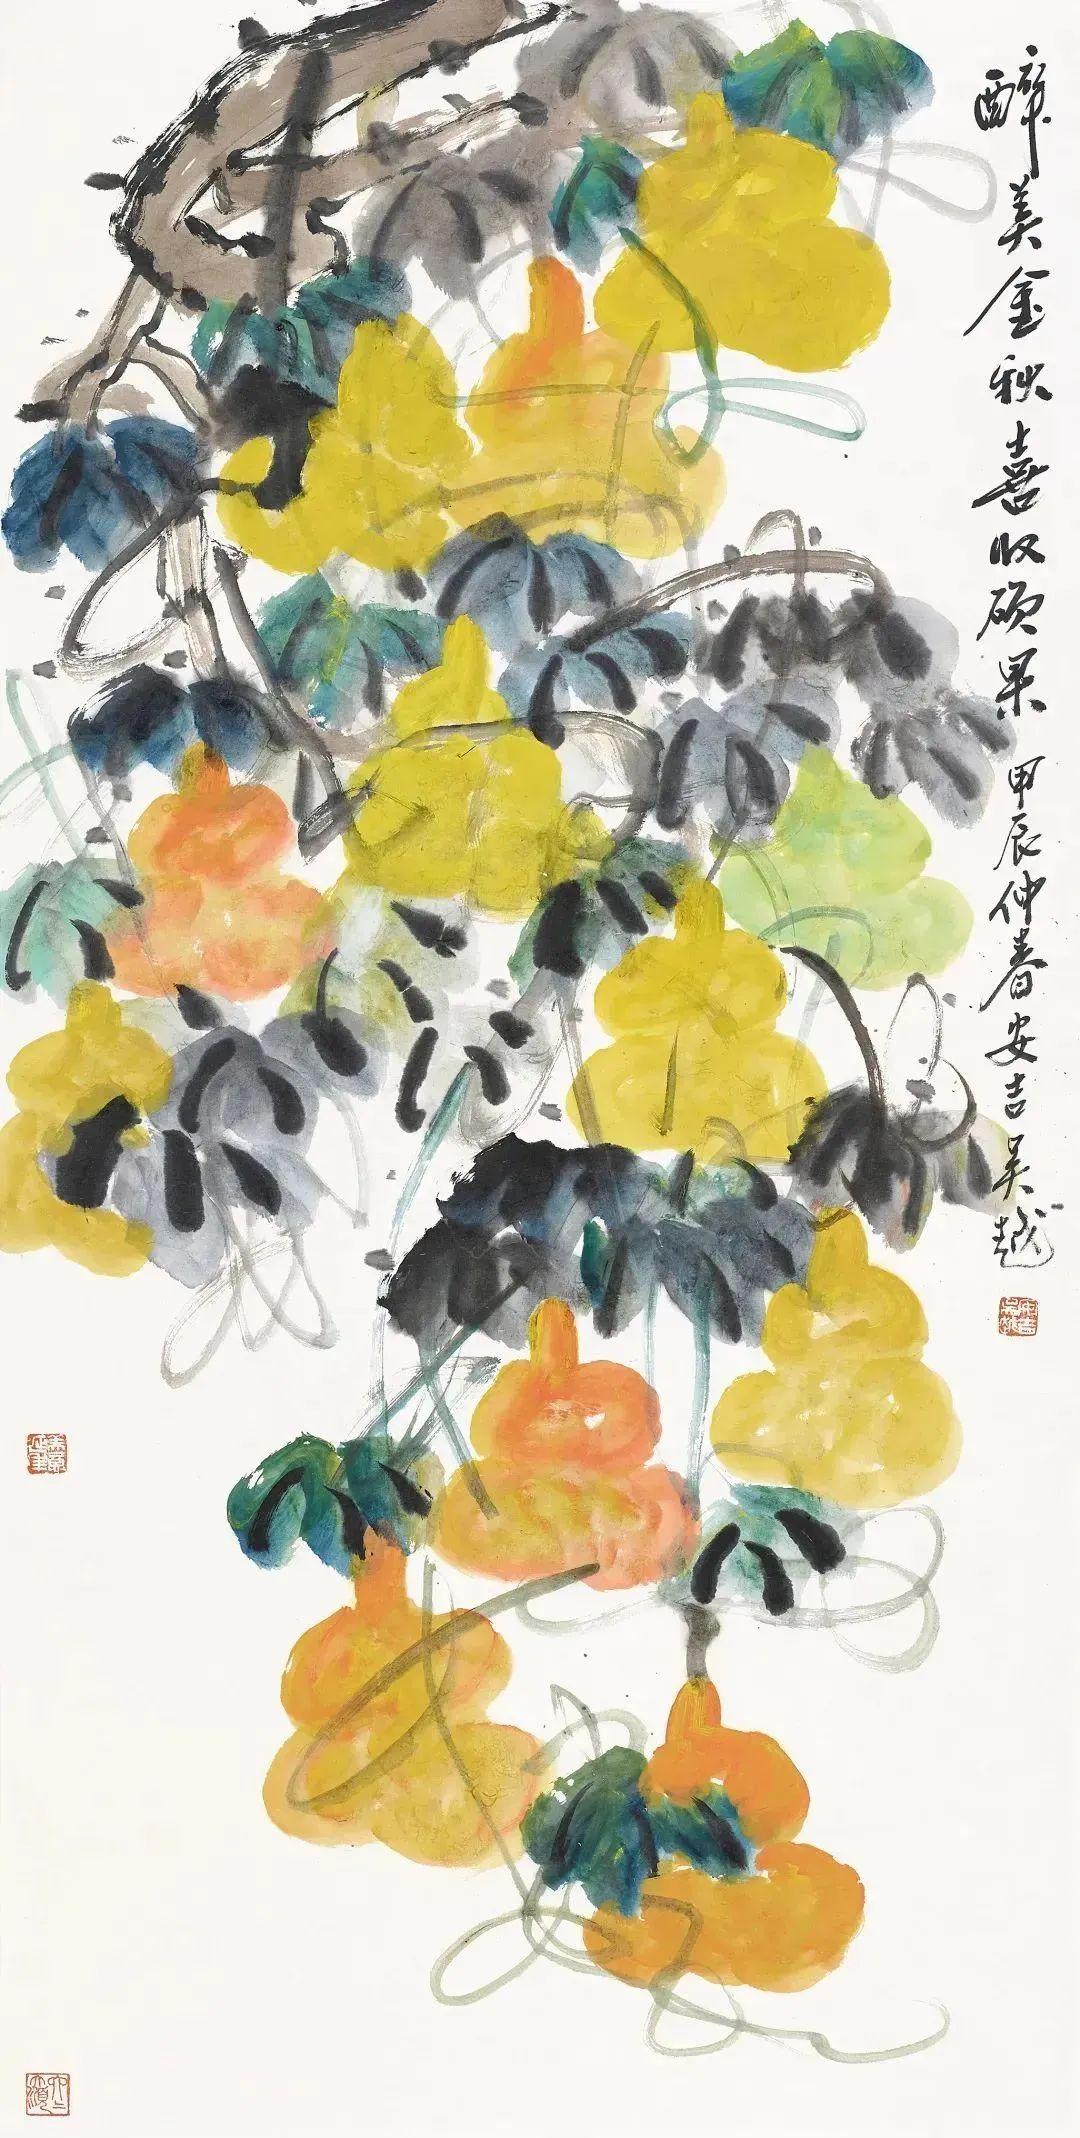 醉美金秋喜收硕果甲辰仲春安吉吴越